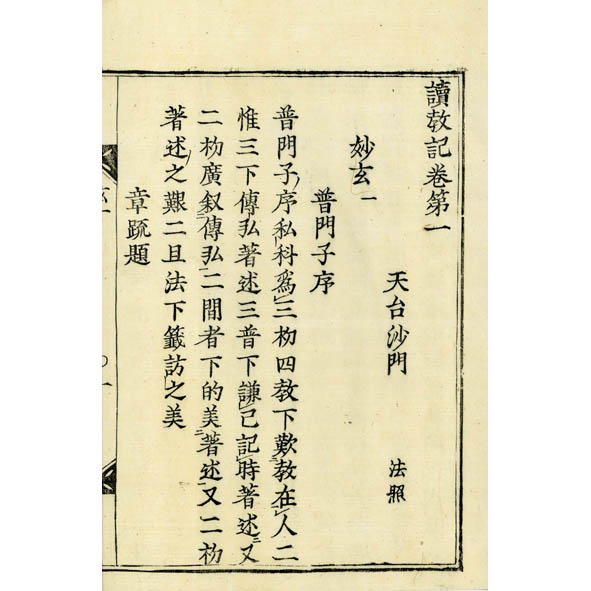 讀教記卷第一
天台沙門 法照
妙玄一
普門子序
普門子序私科爲三初四教下歎教在人二
惟三下傳弘著述三普下謙己記時著述又
二初廣叙傳弘二間者下的美著述又二初
著述之艱二且法下籤訪之美
章䟽題